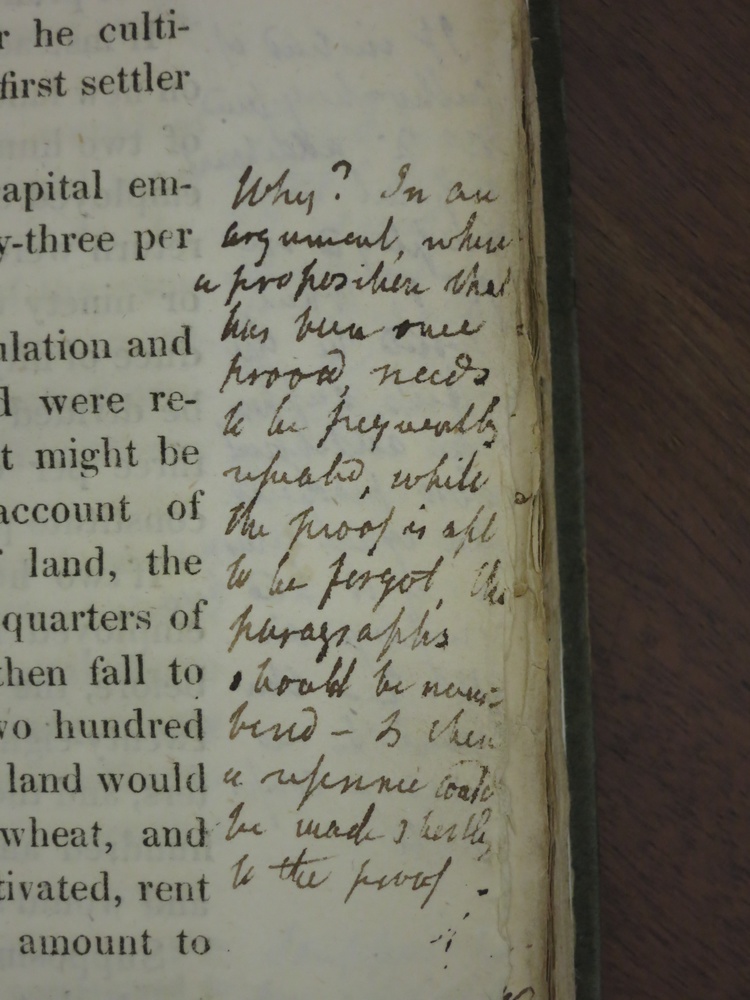 r he culti-
first settler
apital em-
y-three per
ulation and
d were re-
t might be
account of
f land, the
quarters of
then fall to
wo hundred
land would
wheat, and
tivated, rent
amount to
Why? In an
argument, where
a proposition that
has been once
proovd, needs
to be frequently
repeated, while
the proof is apt
to be forgot, the
paragraphs
should be num-
bered – & then
a reference could
be made shortly
to the proof.